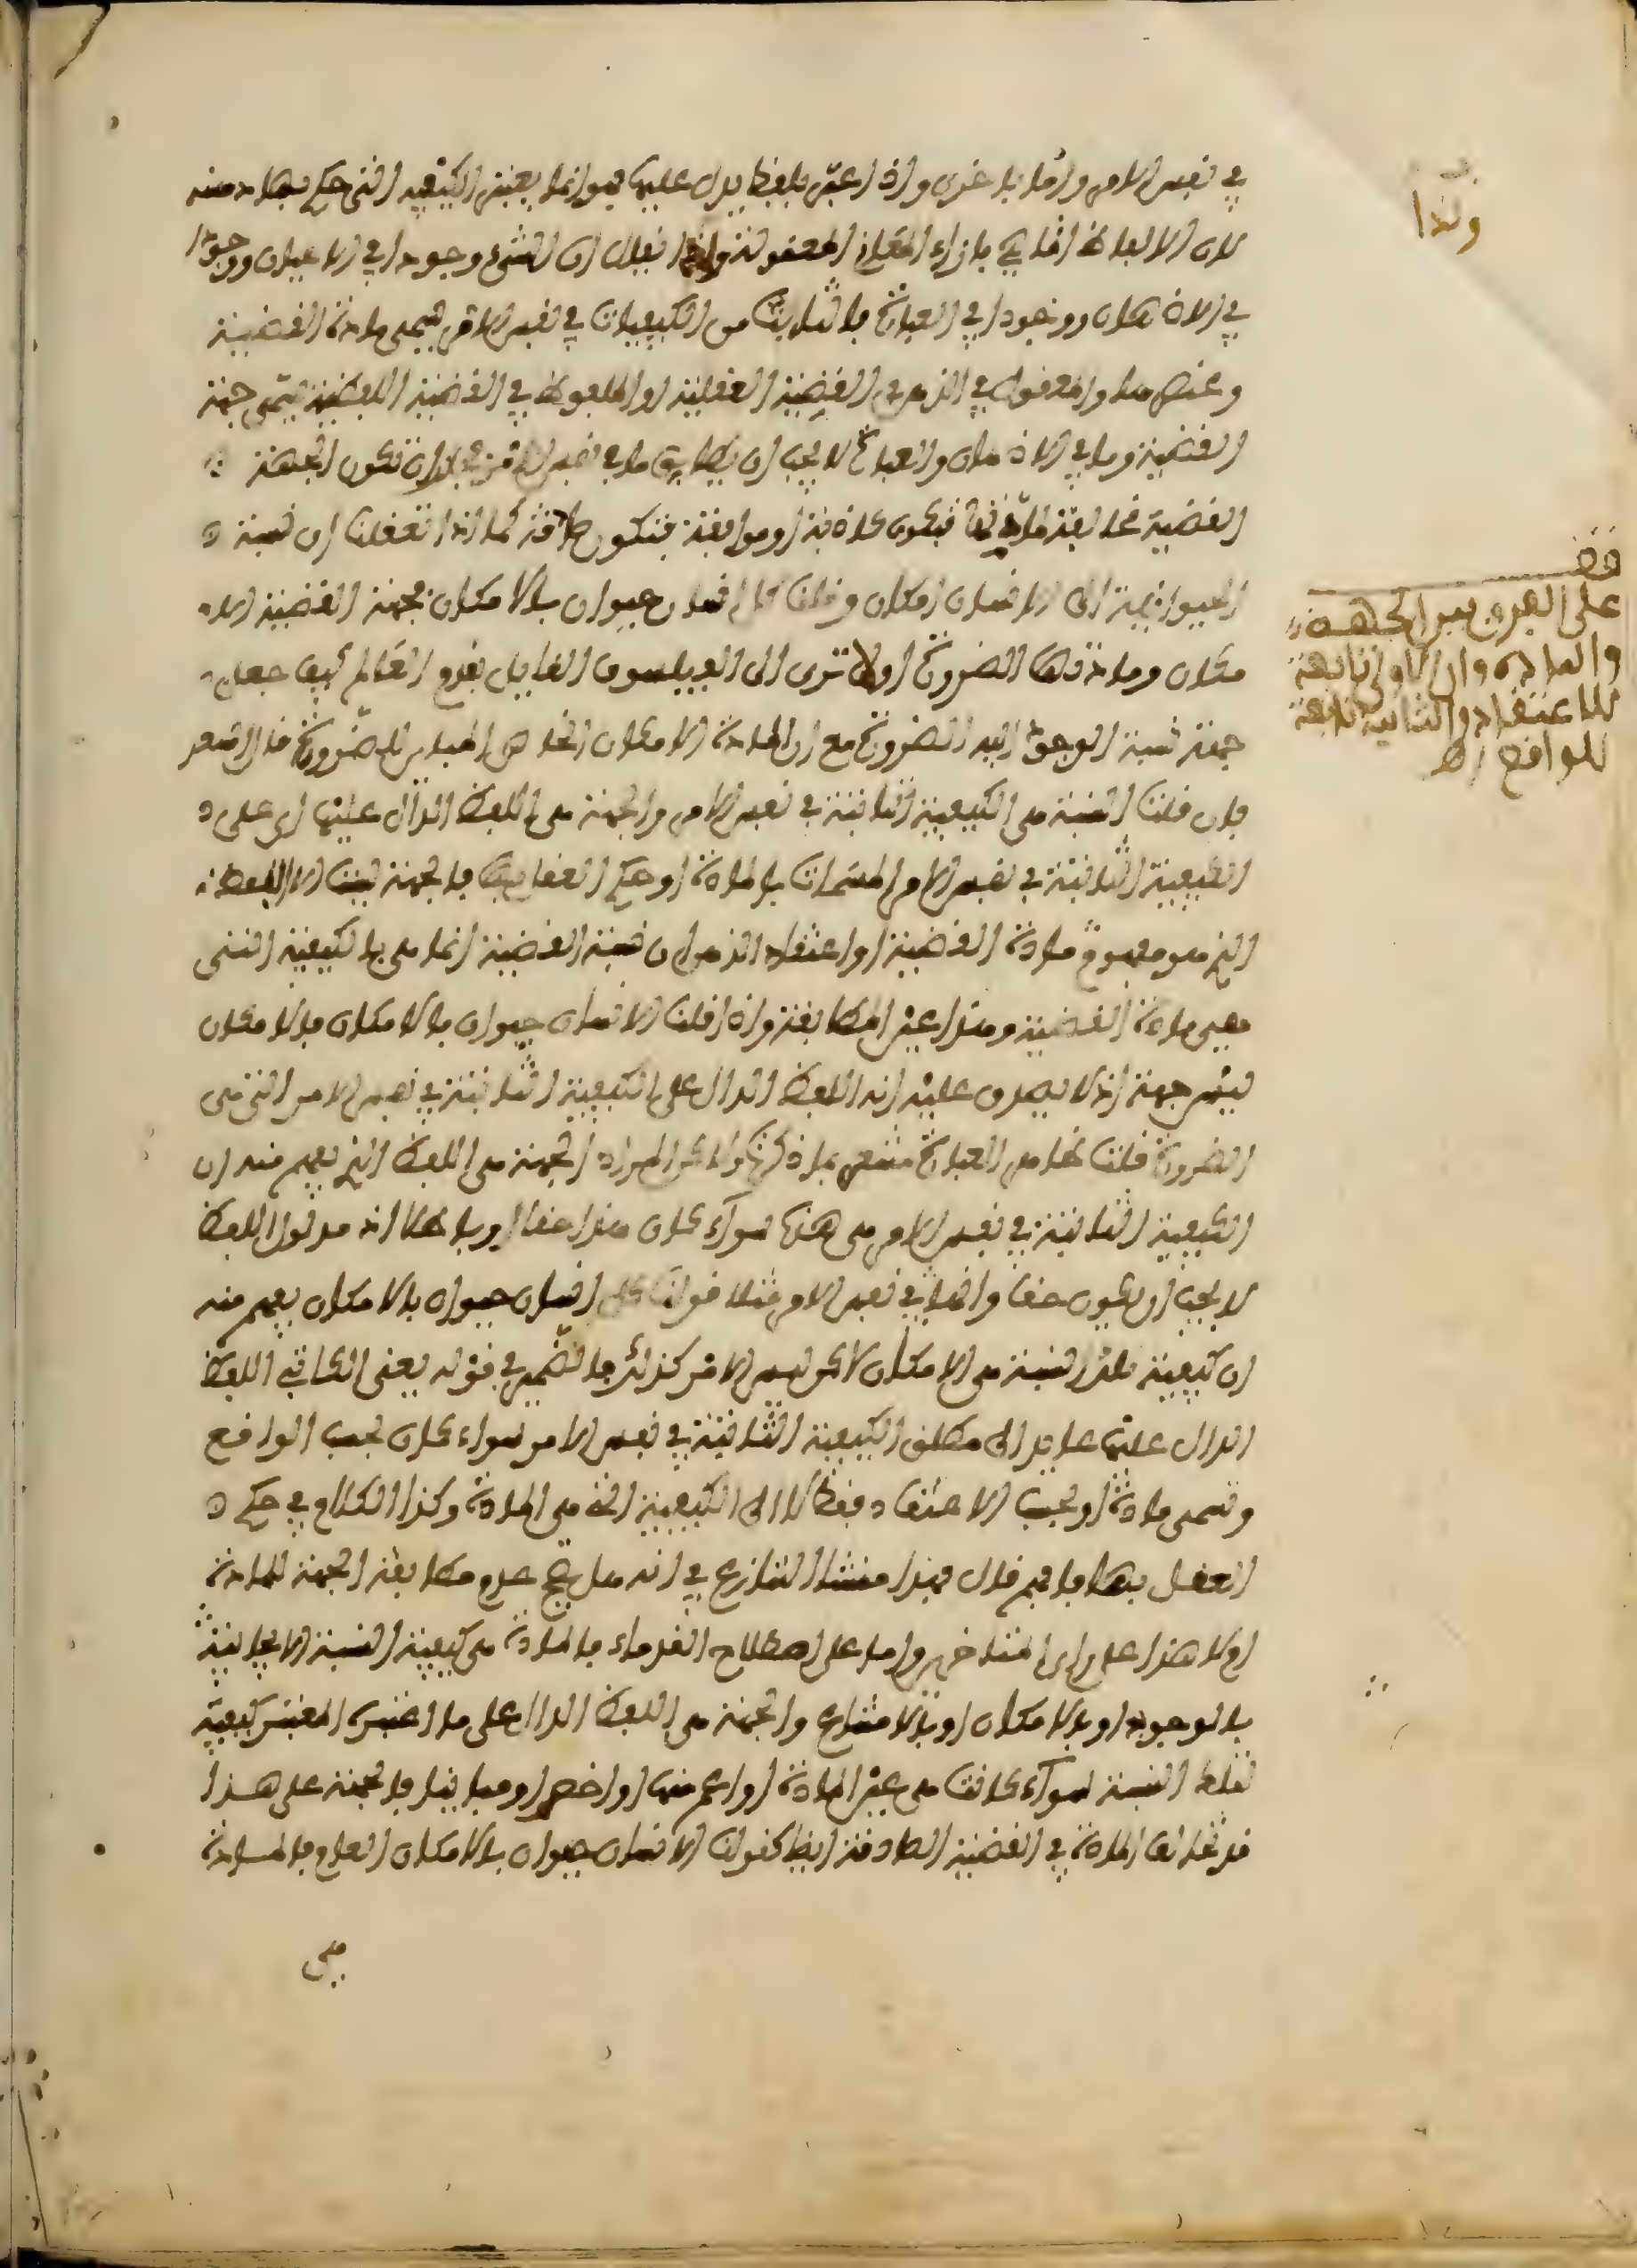 في نفس الامر واما باخرى واذا عبر بلفظ يدل عليها فهو انما يعتبر الكيفية التي حكم بها ذهنه
لان الالفاظ انما هي بازاء المعاني المعقولة ولهذا يقال ان للشيء وجودا في الاعيان ووجودا
في الاذهان ووجودا في العبارة فالثابت من الكيفيات في نفس الامر تسمى مادة القضية
وعنصرها والمعقول في الذهن في القضية العقلية او الملفوظ في القضية اللفظية تسمى جهة
القضية وما في الاذهان والعبارة لا يجب ان يطابق ما في نفس الامر ان تكون الجهة
القضية مخالفة لمادتها فتكون كاذبة او موافقة فتكون صادقة كما اذا تعقلنا ان نسبة
الحيوانية الى الانسان امكان وقلنا كل انسان حيوان بالامكان فجهة القضية الا
مكان ومادتها الضرورة اولا ترى الى الفيلسوف القايل بقدم العالم كيف جعل
جهة نسبة الوجود اليه الضرورة مع ان المادة الامكان الخاص المباين للضرورة قال السعد
فان قلت النسبة هي الكيفية الثابتة في نفس الامر والجهة هي اللفظ الدال عليها اي على
الكيفية الثابتة في نفس الامر المسمات بالمادة او حكم العقل بها فالجهة ليست الا اللفظ
الذي هو مفهوم مادة القضية او اعتقاد الذهن ان نسبة القضية انما هي بالكيفية التي
هي مادة القضية وهذا عين المطابقة واذا قلنا الانسان حيوان بالامكان فالامكان
ليس جهة اذ لا يصدق عليه انه اللفظ الدال على الكيفية الثابتة في نفس الامر التي هي
الضرورة قلت ظاهر العبارة مشعر بما ذكرتم ولكن المراد الجهة هي اللفظ الذي يفهم منه ان
الكيفية الثابتة في نفس الامر هي هذه سواء كان هذا حقا او باطلا اذ مدلول اللفظ
لا يجب ان يكون حقا واقعا في نفس الامر مثلا قولنا كل انسان حيوان بالامكان يفهم منه
ان كيفية هذه النسبة هي الامكان لاكن ليس الامر كذلك فالضمير في قوله يعني الكاتبي اللفظ
الدال عليها عايد الى مطلق الكيفية الثابتة في نفس الامر سواء كان بحسب الواقع
وتسمى مادة او بحسب الاعتقاد فقط لا الى الكيفية التي هي المادة وكذا الكلام في حكم
العقل بها فافهم قال فهذا منشا التنازع في انه هل يصح عدم مطابقة الجهة للمادة
ام لا هذا على راي المتاخرين واما على اصطلاح القدماء فالمادة هي كيفية النسبة الايجابية
بالوجوب او بالامكان او بالامتناع والجهة هي اللفظ الدال على ما اعتبره المعتبر كيفية
لتلك النسبة سواء كانت هي عين المادة او اعم منها او اخص او مباينا فالجهة على هذا
قد تخالف المادة في القضية الصادقة ايضا كقولنا الانسان حيوان بالامكان العام فالمادة
هي
ولذا
قف
على الفرق بين الجهة
والمادة وان الاولى تابعة
للاعتقاد والثانية تابعة
للواقع